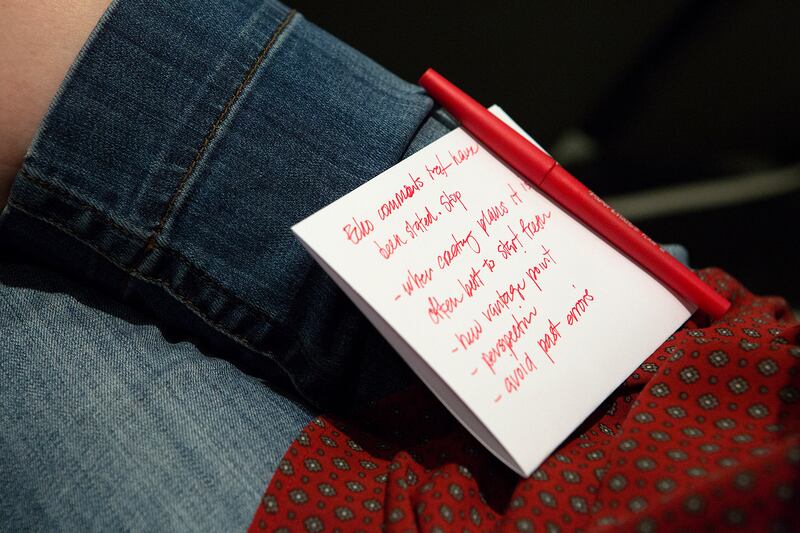 Echo comments that have
been stated. Stop
- when creating plans it is
often best to start fresh
- new vantage point
- perspective
- avoid past errors